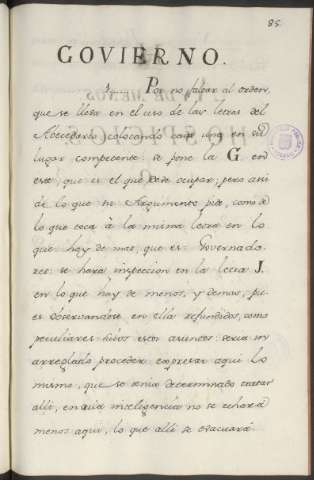 85.
GOVIERNO.
1....... Por no faltar al orden,
que se lleva en el uso de las letras del
Abecedario colocando cada una en su
lugar competente se pone la G. en
este que es el que debe ocupar; pero asi
de lo que su Argumento pide, como de
lo que toca à la misma letra en lo
que hay de mas, que es Governado-
res se hará inspeccion en la letra J.
en lo que hay de menos, y demas, pu-
es observandose en ella refundidos, como
peculiares suios estos asuntos: seria un
arreglado proceder expresar aqui lo
mismo, que se tenia determinado tratar
alli, en cuia inteligencia no se echará
menos aqui, lo que alli se evacuará.